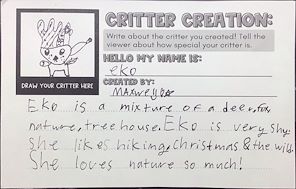 CRITTER CREATION:
Write about the critter you created! Tell the
viewer about how special your critter is.
HELLO MY NAME IS:
eko
CREATED BY:
DRAW YOUR CRITTER HERE
Eko is a mixture of a deer, fox,
nature, treehouse. Eko is very shy.
She likes hiking, Christmas & the wild.
She loves nature so much!